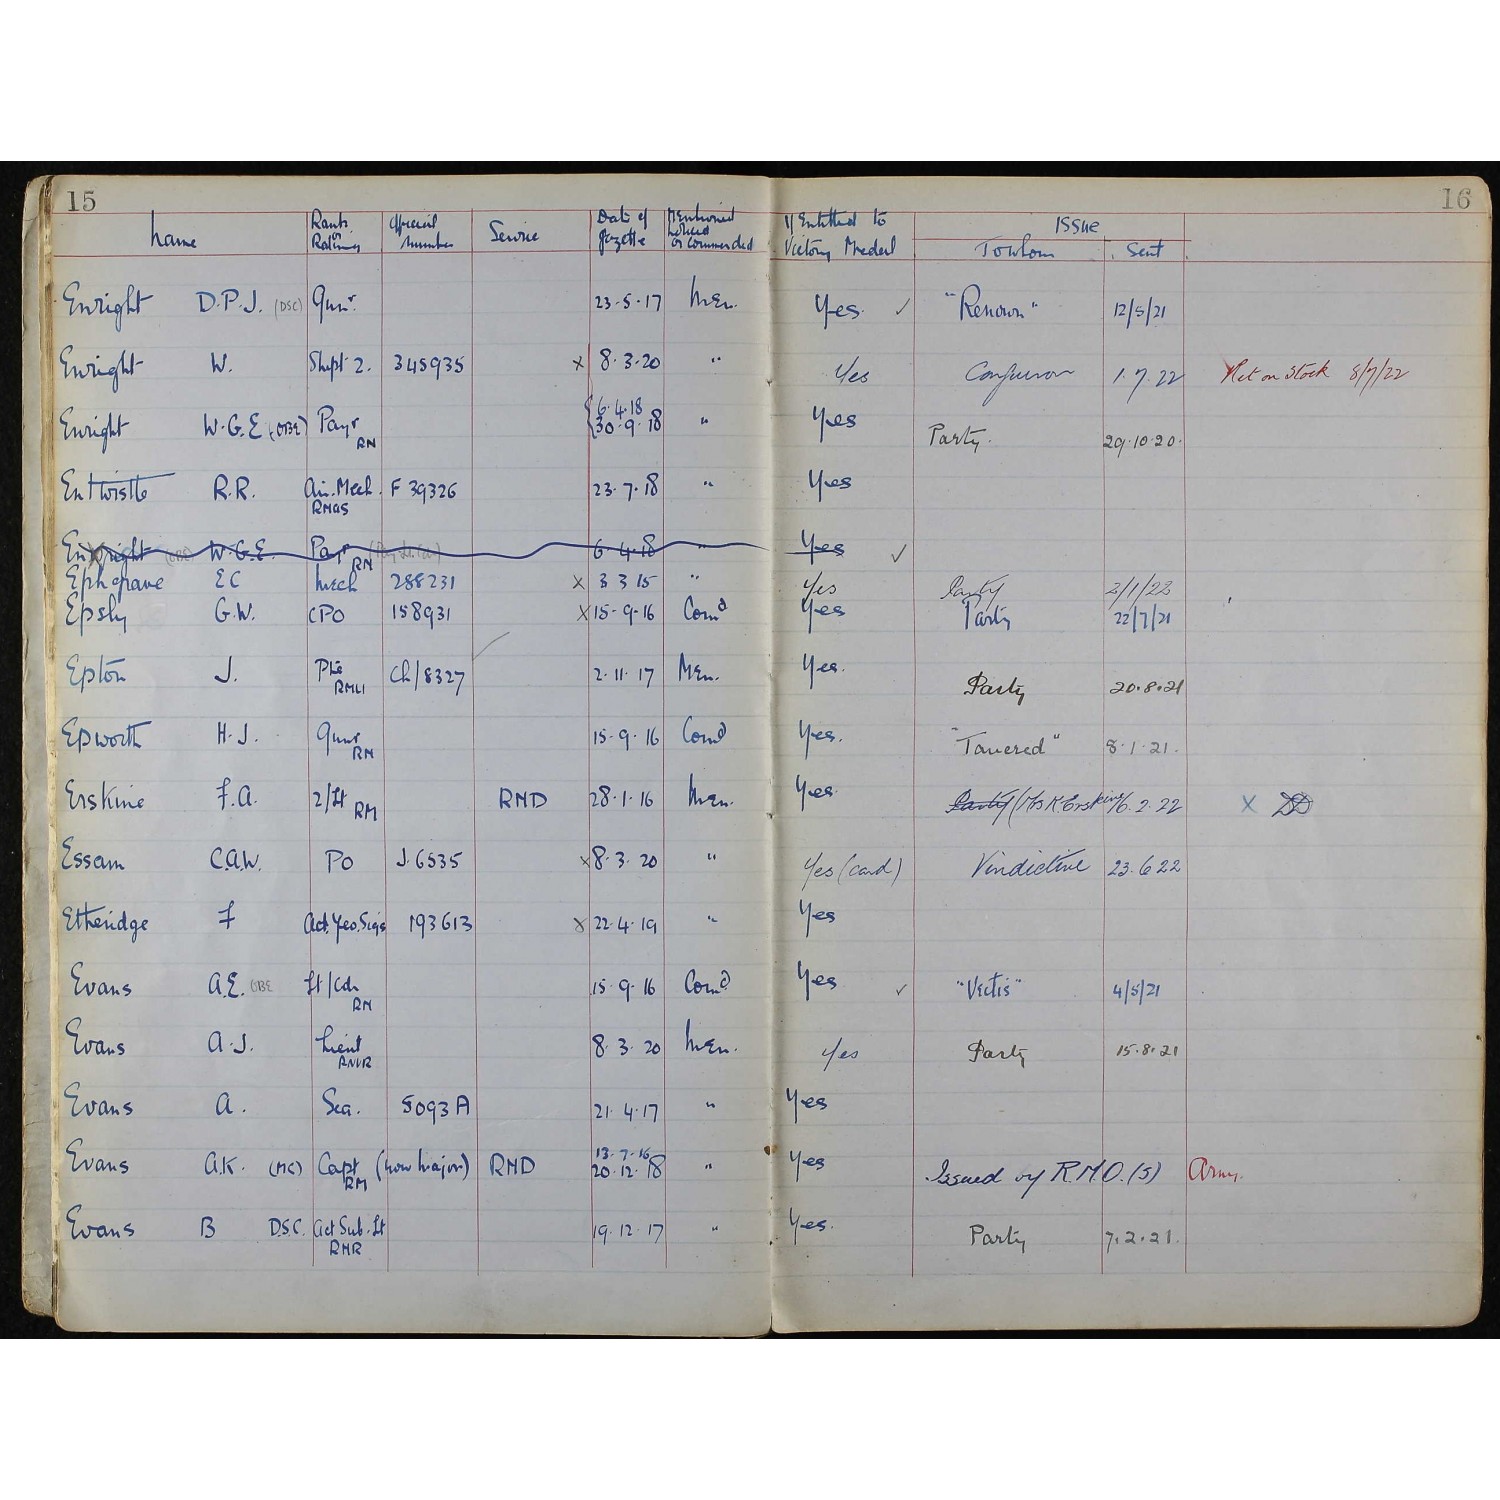 15
16
Name Rank or Rating Official Number Service Date of Gazette Mentioned noticed or commended If Entitled to Victory Medal ISSUE To whom Sent
Enright D.P.J. (DSC) Gunr. 23.5.17 Men. Yes. ✓ "Renown" 12/5/21
Enright W. Shpt 2. 345935 x 8.3.20 " Yes 1.7.22 Ret on Stock 8/7/22
Enright W.G.E (OBE) Payr RN {6.4.18 30.9.18 " Yes Party. 29.10.20.
Entwistle R.R. Air.Mech. RNAS F 39326 23.7.18 " Yes
Enright (OBE) W.G.E. Payr RN 6.4.18 " Yes ✓
Ephgrave EC Mech 288231 x 3 3 15 " Yes Party 2/1/23
Epsly G.W. CPO 158931 x 15-9-16 Comd Yes Party 22/7/21
Epton J. Pte RMLI Ch/8327 2.11.17 Men. Yes. Party 20.8.21
Epworth H.J. Gunr RN 15.9.16 Comd Yes. "Tancred" 8.1.21.
Erskine F.A. 2/Lt RM RND 28.1.16 Men. Yes. Party (Mrs K Erskine) 16.2.22 x
Essam C.A.W. PO J.6535 x 8.3.20 " Yes (card) Vindictive 23.6 22
Etheridge F Act.Yeo.Sigs 193613 x 22.4.19 " Yes
Evans A.E. OBE Lt/Cdr RN 15.9.16 Comd Yes ✓ "Vectis" 4/5/21
Evans A.J. Lieut RNVR 8.3.20 Men. Yes Party 15.8.21
Evans A. Sea. 5093A 21.4.17 " Yes
Evans A.K. (MC) Capt RM (now Major) RND 13.7.16 20.12.18 " Yes Issued by R.M.O.(S) Army.
Evans B D.S.C. Act Sub.Lt RNR 19.12.17 " Yes. Party 7.2.21.